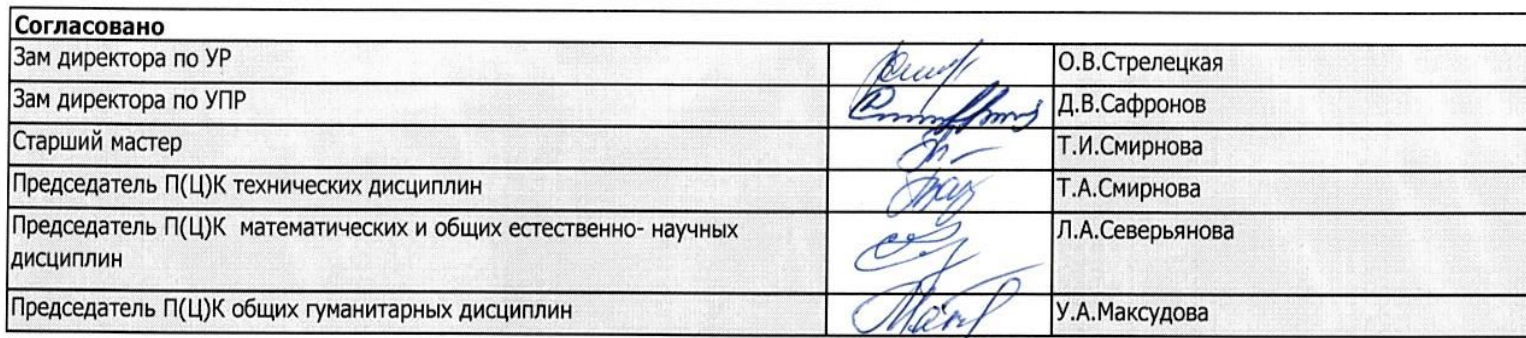 Согласовано
Зам директора по УР О.В.Стрелецкая
Зам директора по УПР Д.В.Сафронов
Старший мастер Т.И.Смирнова
Председатель П(Ц)К технических дисциплин Т.А.Смирнова
Председатель П(Ц)К математических и общих естественно- научных
дисциплин Л.А.Северьянова
Председатель П(Ц)К общих гуманитарных дисциплин У.А.Максудова